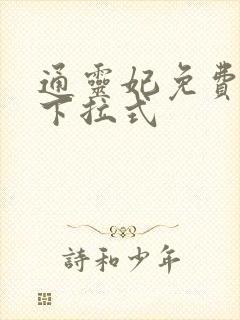 通靈妃免費
下拉式
詩和少年